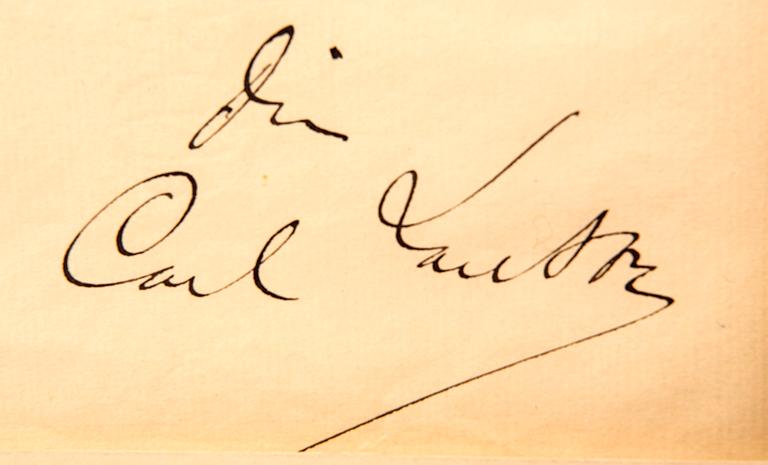 Din
Carl Larsson